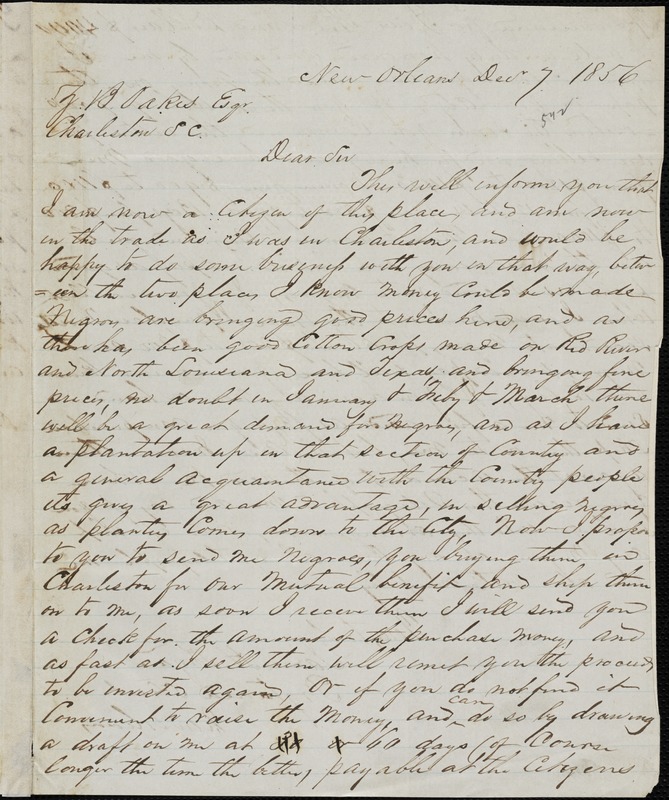 New Orleans Decr 7 1856
Z. B Oakes Esqr.
Charleston S C.
542
Dear Sir
This will inform you that
I am now a Citizen of this place, and am now
in the trade as I was in Charleston, and would be
happy to do some business with you in that way, betw
=een the two places I know money could be made
Negros are bringing good prices here, and as
there has been good Cotton Crops made on Red River
and North Louisiana and Texas, and bringing fine
prices, no doubt in January & Feby & March there
will be a great demand for Negros, and as I have
a plantation up in that section of Country and
a general acquaintance with the Country people
its gives a great advantage, in selling negros
as planters Comes down to the City, Now I propose
to you to send me Negroes, you buying them in
Charleston for our Mutual benefit and ship them
on to me, as soon I receive them I will send you
a check for the amount of the purchase money, and
as fast as I sell them will remit you the proceeds
to be invested again, Or if you do not find it
Convenient to raise the money, and can do so by drawing
a draft on me at 60 days, of Course
longer the time the better, payable at the Citizens